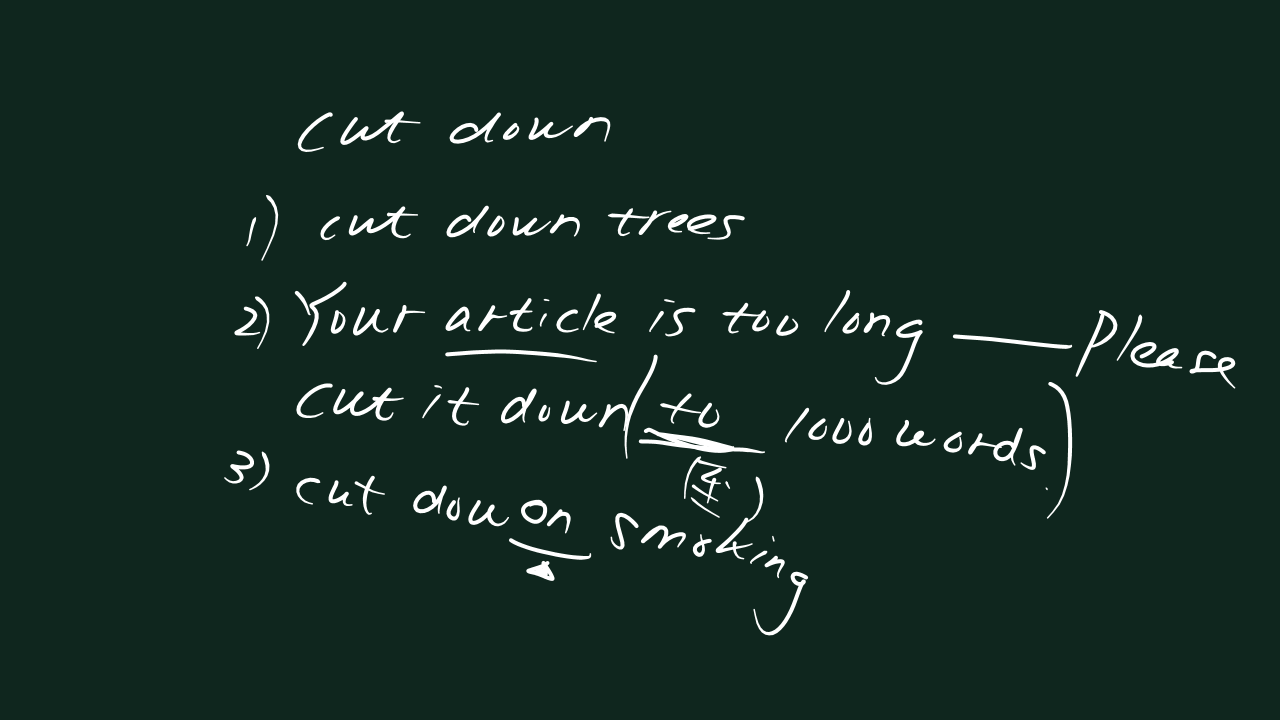 cut down
1) cut down trees
2) Your article is too long — Please
cut it down (to 1000 words)
3) cut down on smoking